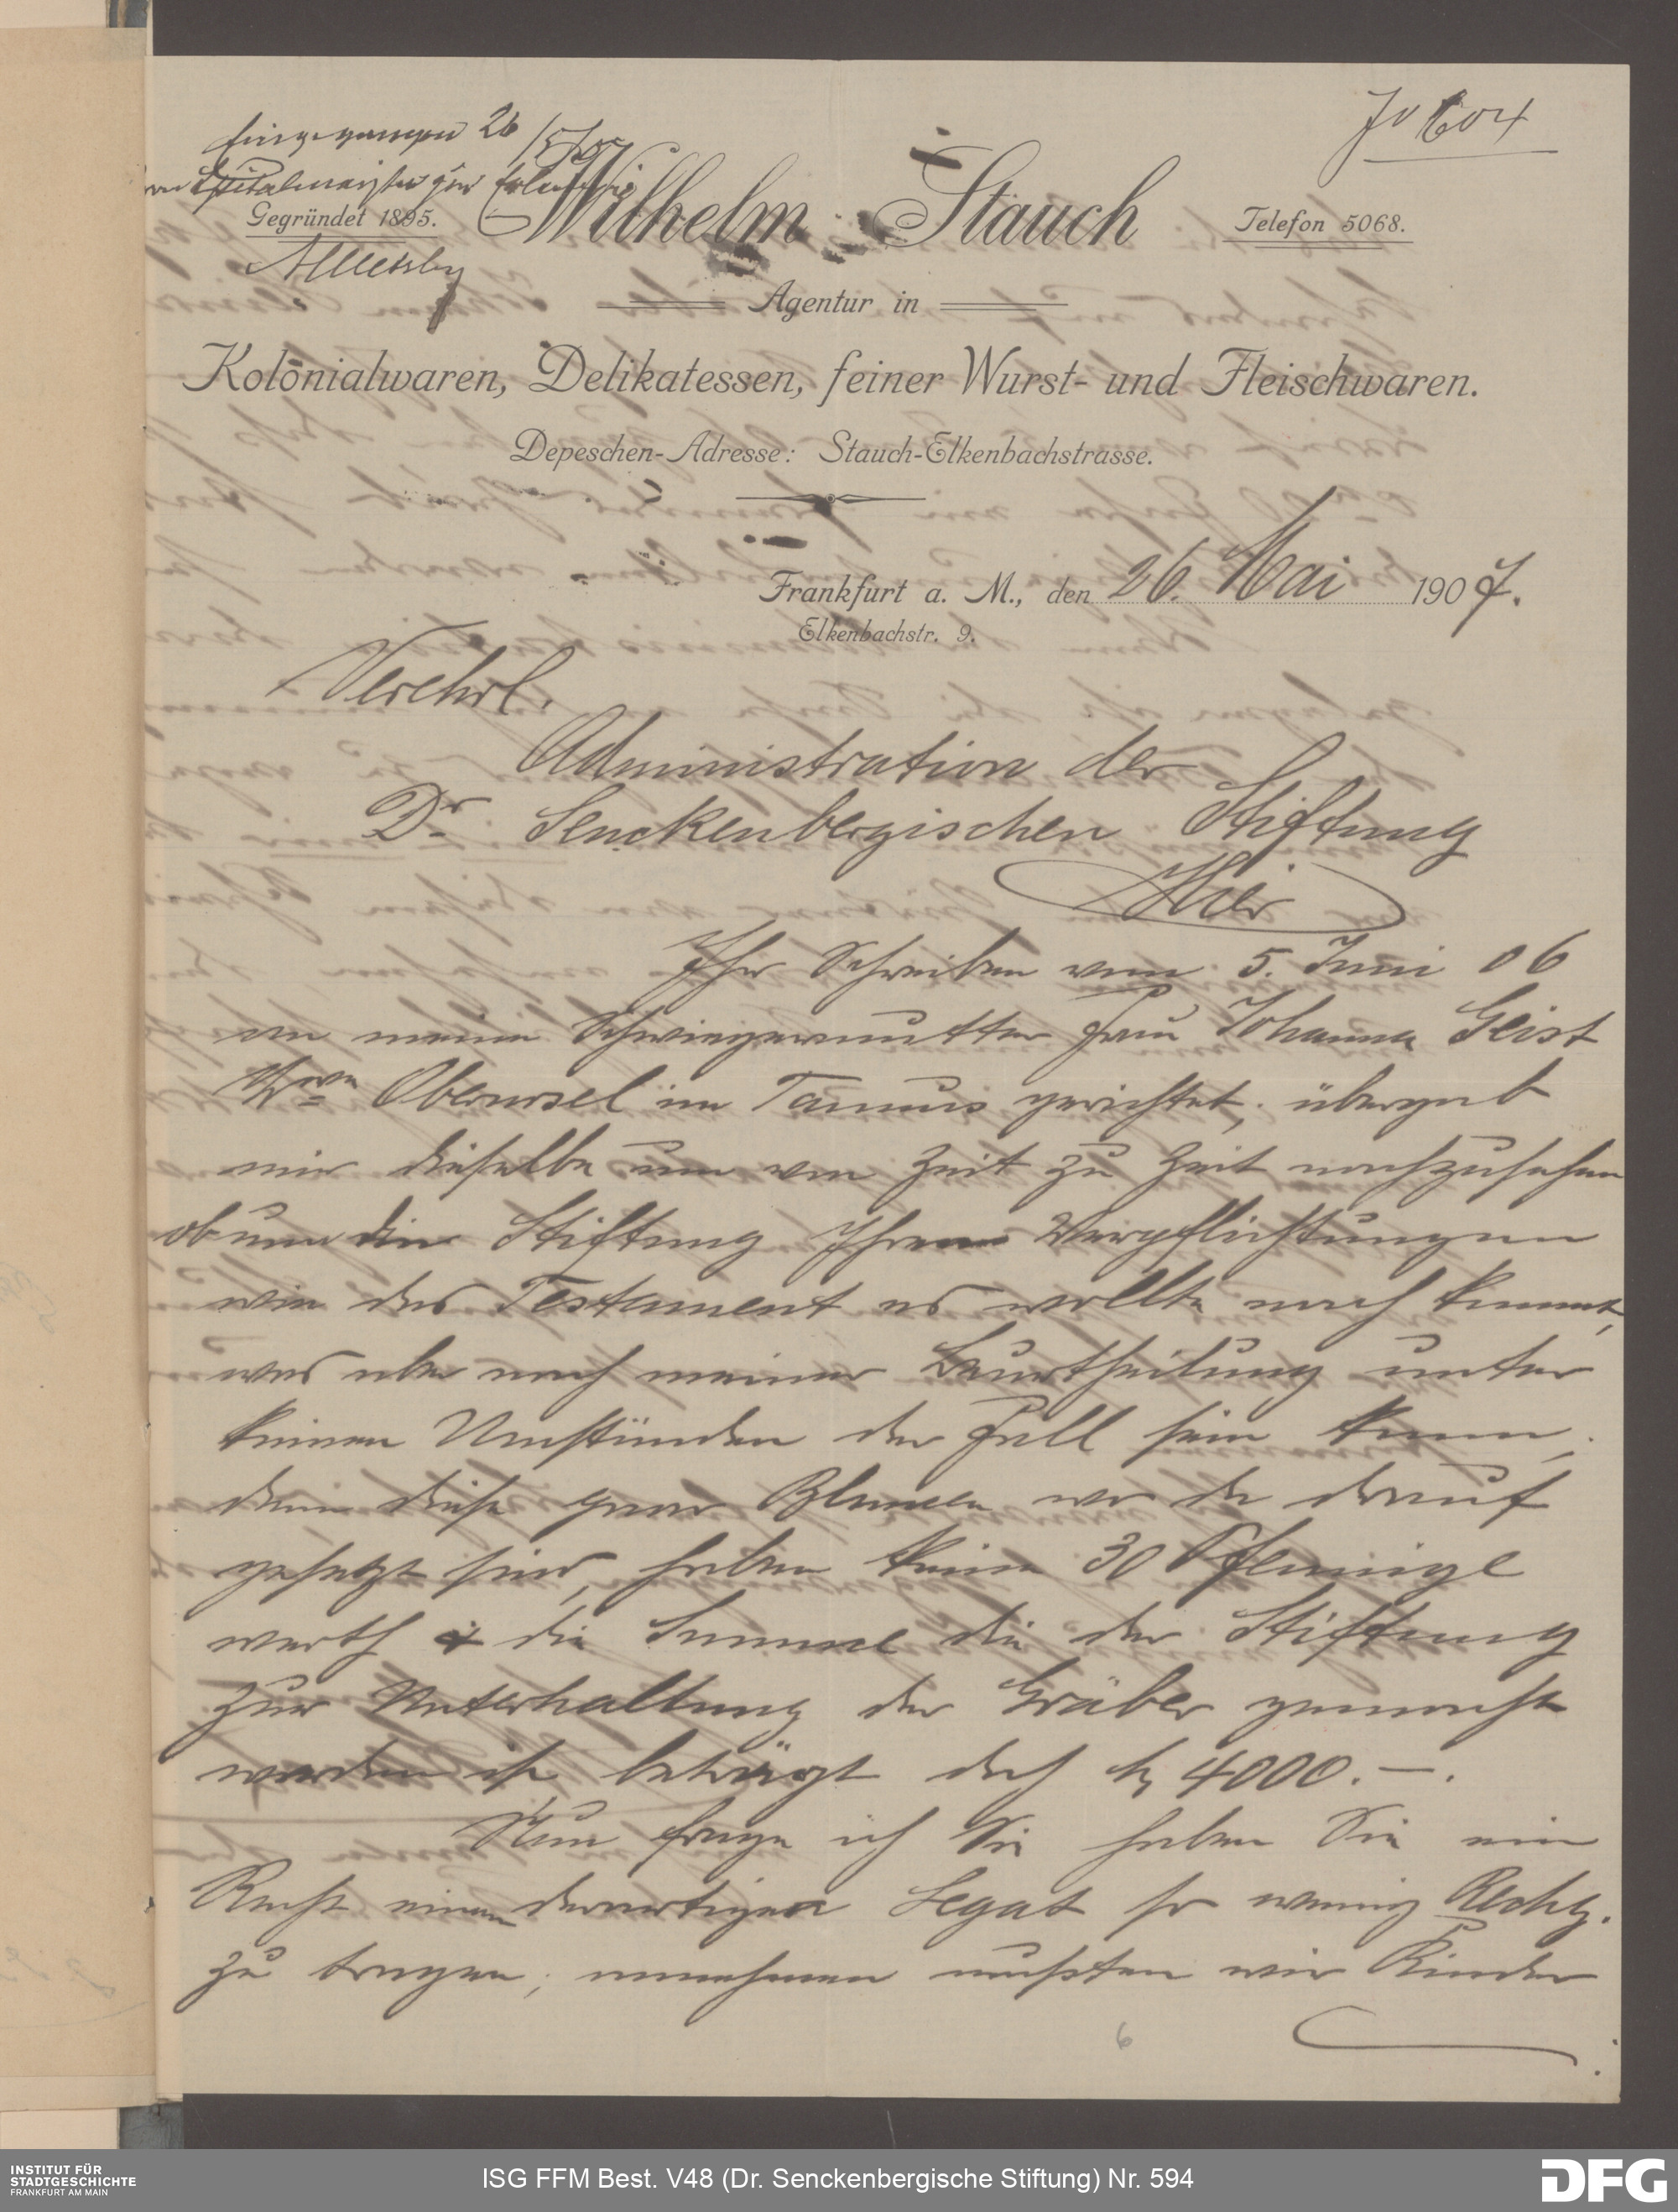 Eingegangen 26/5/07
Spitalmeister zur
Jv 604
Gegründet 1895.
Wilhelm Stauch
Telefon 5068.
Agentur in
Kolonialwaren, Delikatessen, feiner Wurst- und Fleischwaren.
Depeschen-Adresse: Stauch-Elkenbachstrasse.
Frankfurt a. M., den 26. Mai 1907.
Elkenbachstr. 9.
Verehrl.
Administration der
Dr Senckenbergischen Stiftung
Hier
Ihr Schreiben vom 5. Juni 06
an meine Schwiegermutter Frau Johanna Geist
Wwe Oberursel im Taunus gerichtet, übergab
mir dieselbe um von Zeit zu Zeit nachzusehen
ob nun die Stiftung Ihren Verpflichtungen
wie das Testament es wollte nach kommt,
was aber nach meiner Beurtheilung unter
keinen Umständen der Fall sein kann,
denn diese paar Blumen wo da darauf
gesetzt sind, haben keine 30 Pfennige
werth & die Summe die der Stiftung
zur Unterhaltung der Gräber gemacht
worden ist beträgt doch M 4000.–.
Nun frage ich Sie haben Sie ein
Recht einem derartigen Legat so wenig Rechng.
zu tragen; annehmen mußten wir Kinder
6
INSTITUT FÜR
STADTGESCHICHTE
FRANKFURT AM MAIN
ISG FFM Best. V48 (Dr. Senckenbergische Stiftung) Nr. 594
DFG